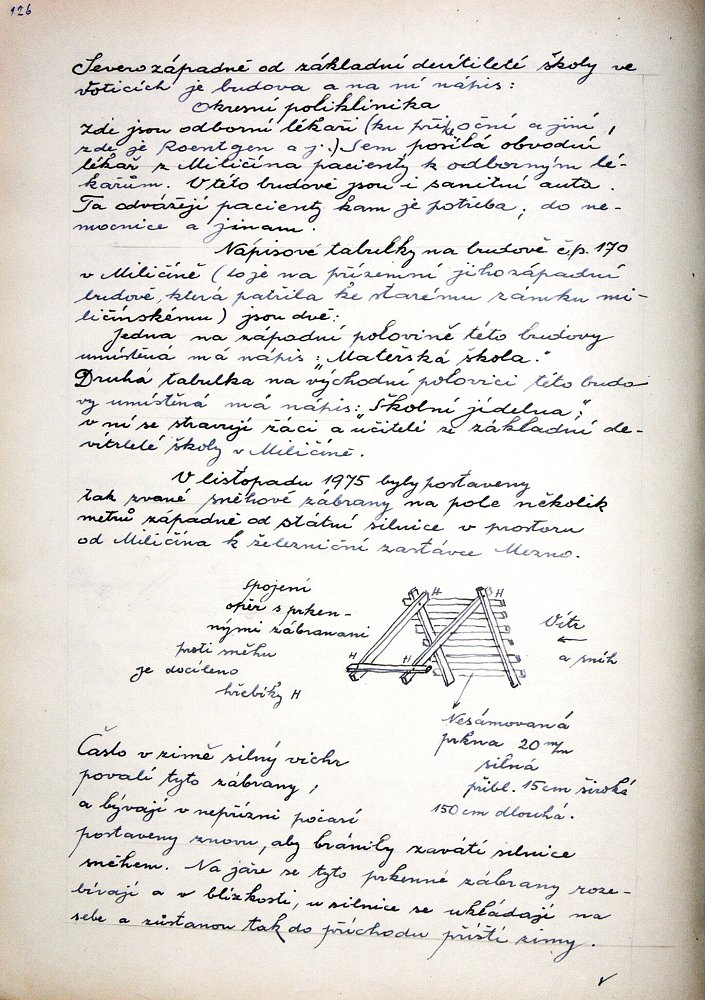 126
Severozápadně od základní devítileté školy ve
Voticích je budova a na ní nápis:
Okresní poliklinika
Zde jsou odborní lékaři (ku příkl. oční a jiní,
zde je Roentgen a j.) Sem posílá obvodní
lékař z Miličína pacienty k odborným lé-
kařům. V této budově jsou i sanitní auta.
Ta odvážejí pacienty kam je potřeba, do ne-
mocnice a jinam.
Nápisové tabulky na budově č.p. 170
v Miličíně (to je na přízemní jihozápadní
budově, která patřila ke starému zámku mi-
ličínskému) jsou dvě:
Jedna na západní polovině této budovy
umístěná má nápis: „Mateřská škola."
Druhá tabulka na východní polovici této budo
vy umístěná má nápis: „Školní jídelna",
v ní se stravují žáci a učitelé ze základní de-
vítileté školy v Miličíně.
V listopadu 1975 byly postaveny
tak zvané sněhové zábrany na pole několik
metrů západně od státní silnice v prostoru
od Miličína k železniční zastávce Mezno.
Spojení
opěr s prken-
nými zábranami
proti sněhu
je docíleno
hřebíky H
H
H
H
H
Vítr
←
a sníh
Nesámovaná
prkna 20 m/m
silná
přibl. 15 cm široká
150 cm dlouhá.
Často v zimě silný vichr
povalí tyto zábrany,
a bývají v nepřízni počasí
postaveny znovu, aby bránily zavátí silnice
sněhem. Na jaře se tyto prkenné zábrany roze-
bívají a v blízkosti, u silnice se ukládají na
sebe a zůstanou tak do příchodu příští zimy.